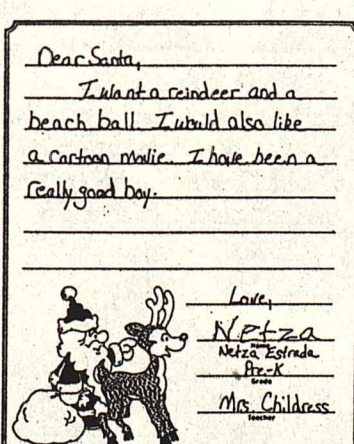 Dear Santa,
I want a reindeer and a
beach ball. I would also like
a cartoon movie. I have been a
really good boy.
Love,
Netza
Name
Netza Estrada
Pre-K
Grade
Mrs. Childress
Teacher